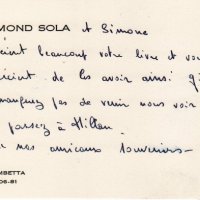 MOND SOLA et Simone
cient beaucoup votre livre et vous
cient de les avoir ainsi g
manquez pas de venir nous voir
passez à Millau
nos amicaux souvenirs
MBETTA
06-81